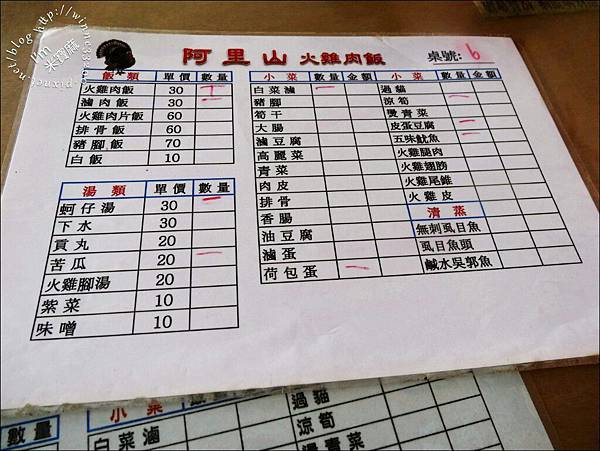 阿里山火雞肉飯
桌號: 6
飯類 單價 數量
火雞肉飯 30
滷肉飯 30
火雞肉片飯 60
排骨飯 60
豬腳飯 70
白飯 10
湯類 單價 數量
蚵仔湯 30
下水 30
貢丸 20
苦瓜 20
火雞腳湯 20
紫菜 10
味噌 10
小菜 數量 金額
白菜滷
豬腳
筍干
大腸
滷豆腐
高麗菜
青菜
肉皮
排骨
香腸
油豆腐
滷蛋
荷包蛋
小菜 數量 金額
過貓
涼筍
燙青菜
皮蛋豆腐
五味魷魚
火雞腿肉
火雞翅膀
火雞尾錐
火雞皮
清蒸
無刺虱目魚
虱目魚頭
鹹水吳郭魚
數量
小菜 數量 金額
白菜滷
過貓
涼筍
燙青菜
I'm 米寶麻